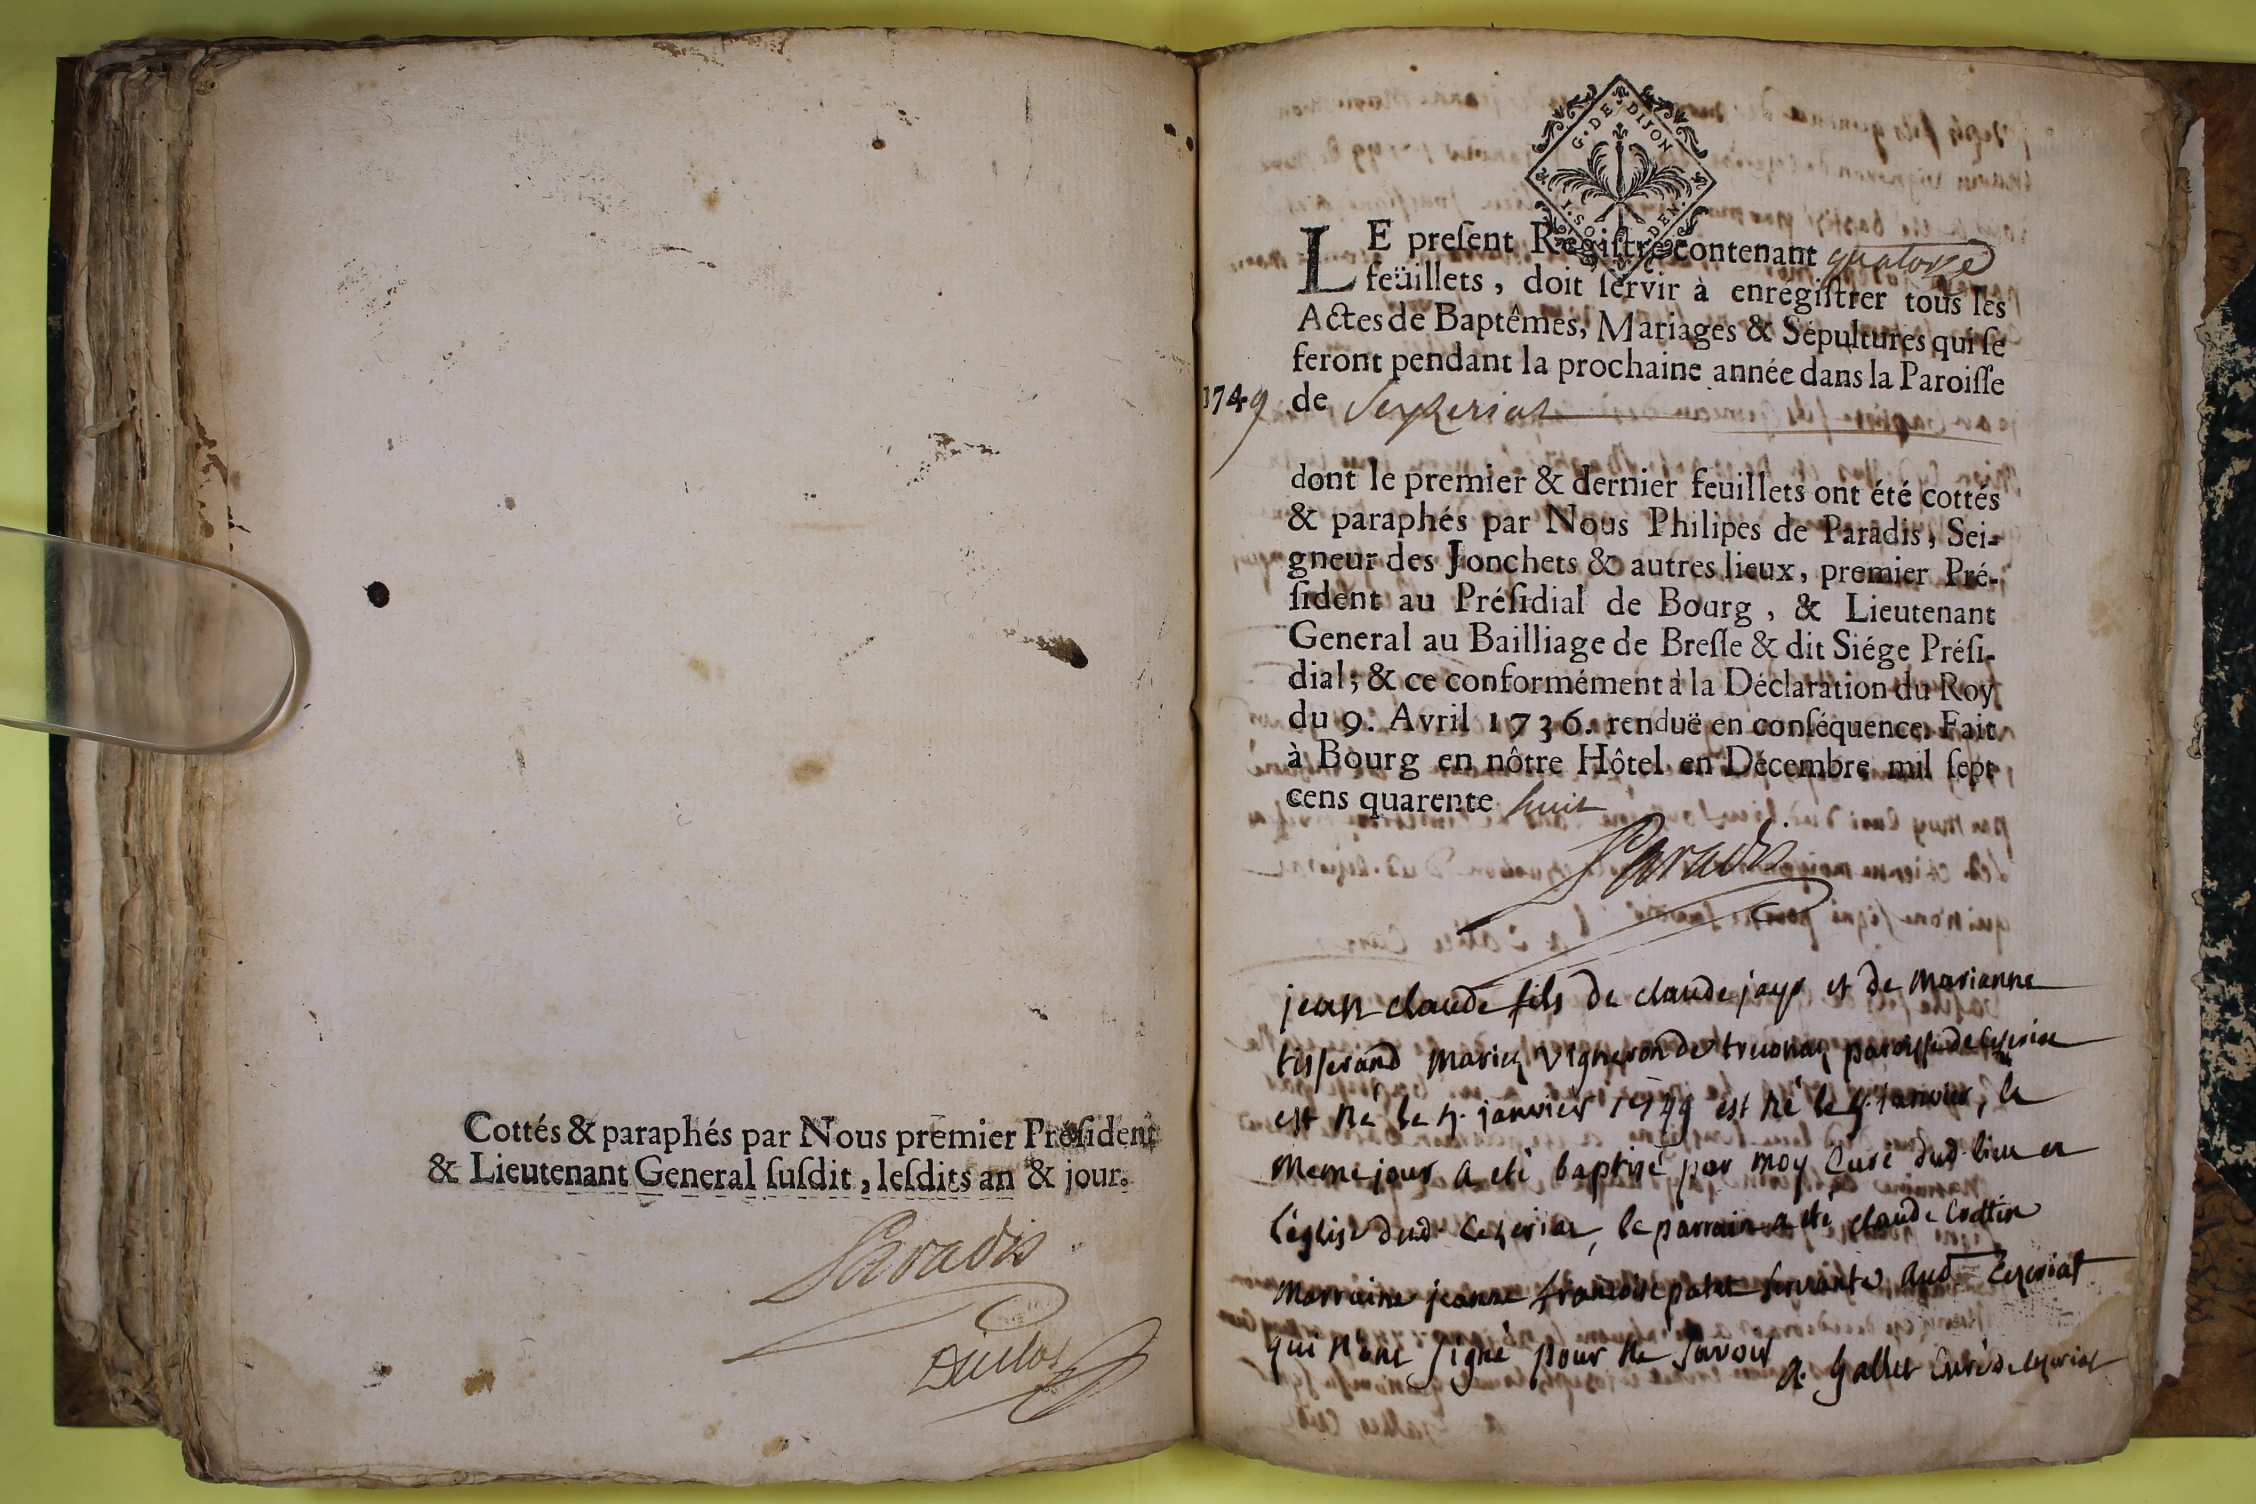 Cottés & paraphés par Nous premier Président
& Lieutenant General ſuſdit, leſdits an & jour.
Paradis
G. DE DIJON
LE preſent Regiſtre contenant quatorze
feüillets, doit ſervir à enrégiſtrer tous les
Actes de Baptêmes, Mariages & Sépultures qui ſe
feront pendant la prochaine année dans la Paroiſſe
1749 de Seyzeriat
dont le premier & dernier feuillets ont été cottés
& paraphés par Nous Philipes de Paradis, Sei-
gneur des Jonchets & autres lieux, premier Pré-
ſident au Préſidial de Bourg, & Lieutenant
General au Bailliage de Breſſe & dit Siége Préſi-
dial; & ce conformément à la Déclaration du Roy
du 9. Avril 1736. renduë en conſéquence. Fait
à Bourg en nôtre Hôtel en Décembre mil ſept
cens quarente huit
Paradis
jean claude fils de claude jayr et de Marianne
tisserand Mariez vigneron de paroisse de
est né le janvier 1749 est né le janvier, le
meme jour a eté baptisé par moy Curé dud. lieu en
l'église dud. Ceyzeriat, le parrain a eté claude
marraine jeanne francoise servante aud Ceyzeriat
qui n'ont signé pour ne savoir
A. Gallet Curé de Ceyzeriat